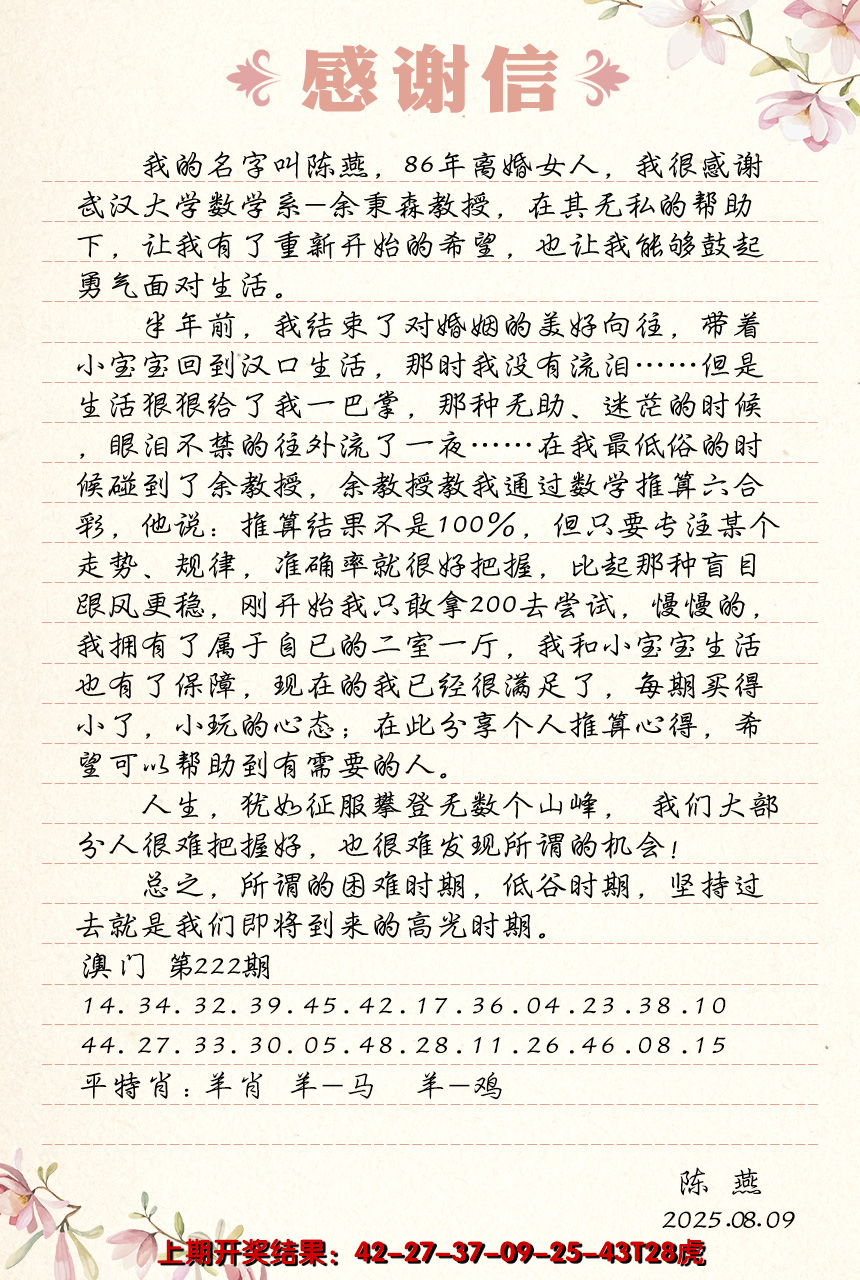 感谢信
我的名字叫陈燕，86年离婚女人，我很感谢
武汉大学数学系-余秉森教授，在其无私的帮助
下，让我有了重新开始的希望，也让我能够鼓起
勇气面对生活。
半年前，我结束了对婚姻的美好向往，带着
小宝宝回到汉口生活，那时我没有流泪……但是
生活狠狠给了我一巴掌，那种无助、迷茫的时候
，眼泪不禁的往外流了一夜……在我最低俗的时
候碰到了余教授，余教授教我通过数学推算六合
彩，他说：推算结果不是100%，但只要专注某个
走势、规律，准确率就很好把握，比起那种盲目
跟风更稳，刚开始我只敢拿200去尝试，慢慢的，
我拥有了属于自已的二室一厅，我和小宝宝生活
也有了保障，现在的我已经很满足了，每期买得
小了，小玩的心态；在此分享个人推算心得，希
望可以帮助到有需要的人。
人生，犹如征服攀登无数个山峰， 我们大部
分人很难把握好，也很难发现所谓的机会！
总之，所谓的困难时期，低谷时期，坚持过
去就是我们即将到来的高光时期。
澳门 第222期
14.34.32.39.45.42.17.36.04.23.38.10
44.27.33.30.05.48.28.11.26.46.08.15
平特肖：羊肖 羊-马 羊-鸡
陈 燕
2025.08.09
上期开奖结果：42-27-37-09-25-43T28虎